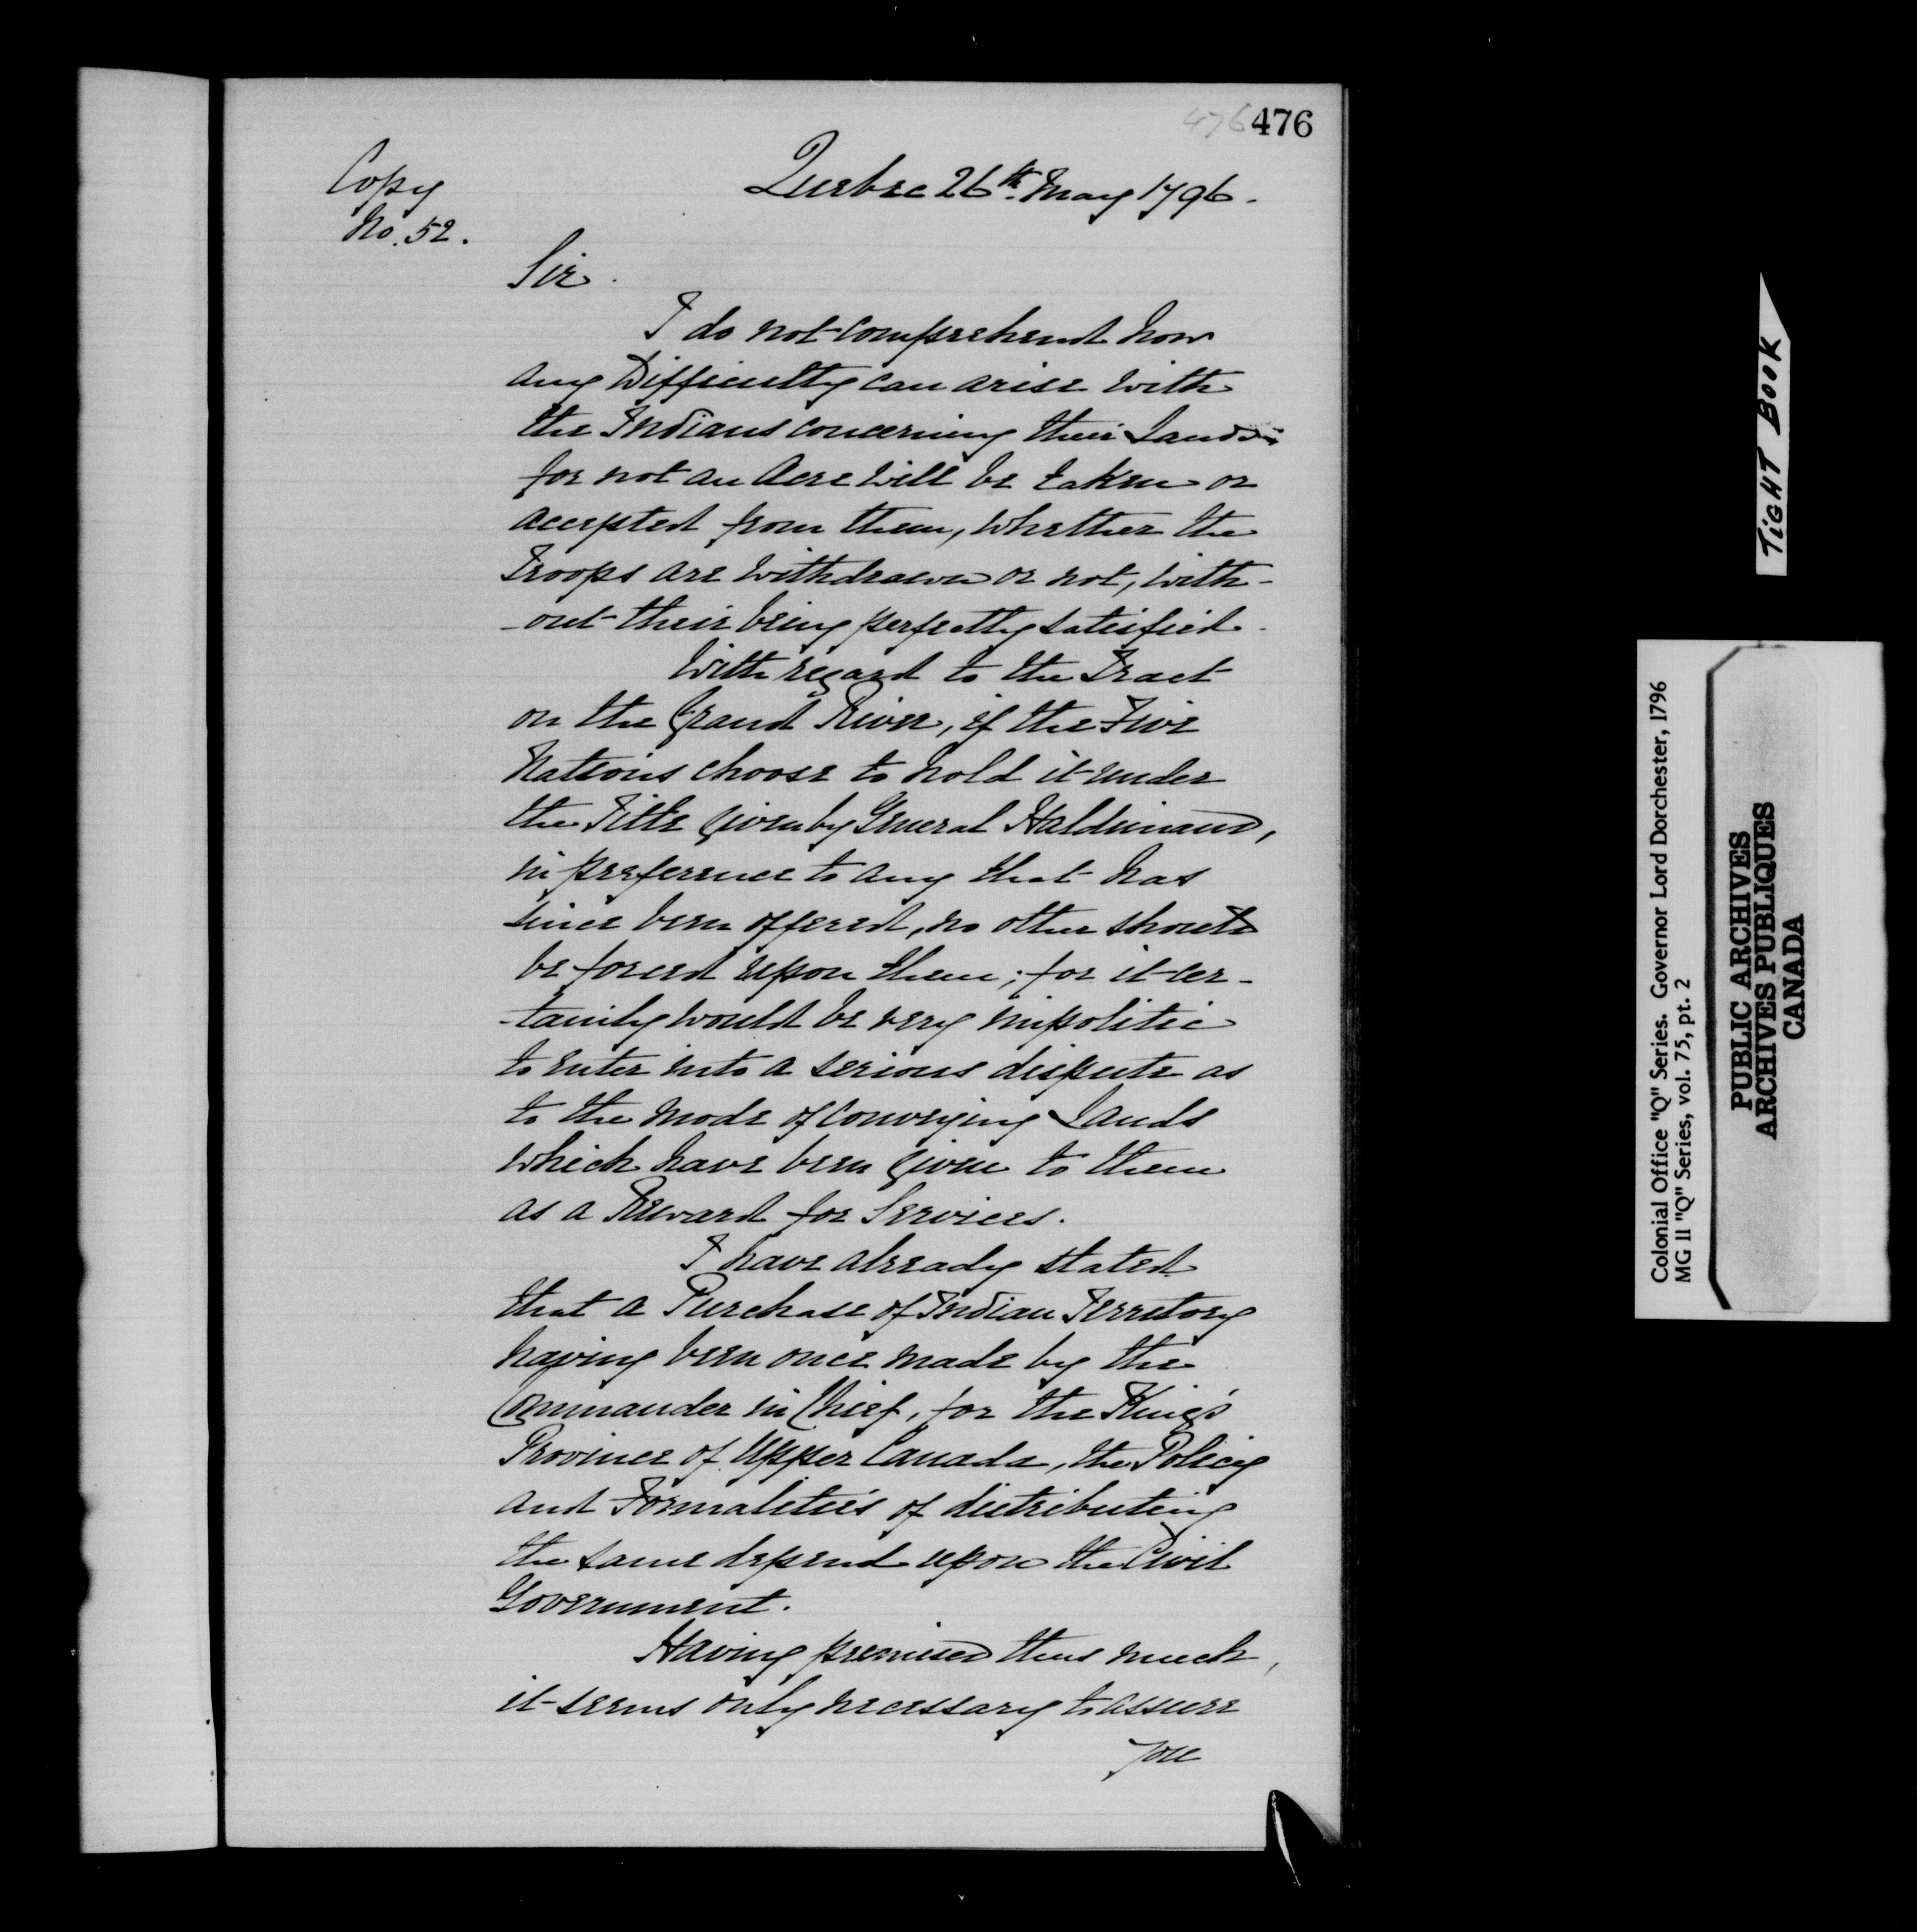 476 476
Copy
No. 52.
Quebec 26th. May 1796.
Sir.
I do not comprehend how
any Difficulty can arise with
the Indians concerning their Lands
for not an Acre will be taken or
accepted from them, whether the
Troops are withdrawn or not, with-
-out their being perfectly satisfied.
With regard to the Tract
on the Grand River, if the Five
Nations choose to hold it under
the Title given by General Haldimand,
in preference to any that has
since been offered, no other should
be forced upon them; for it cer-
-tainly would be very impolitic
to enter into a serious dispute as
to the mode of conveying Lands
which have been given to them
as a Reward for Services.
I have already stated
that a Purchase of Indian Territory
having been once made by the
Commander in Chief, for the King's
Province of Upper Canada, the Policy
and Formalities of distributing
the same depend upon the Civil
Government.
Having premised thus much,
it seems only necessary to assure
you
TIGHT BOOK
Colonial Office "Q" Series. Governor Lord Dorchester, 1796
MG 11 "Q" Series, vol. 75, pt. 2
PUBLIC ARCHIVES
ARCHIVES PUBLIQUES
CANADA